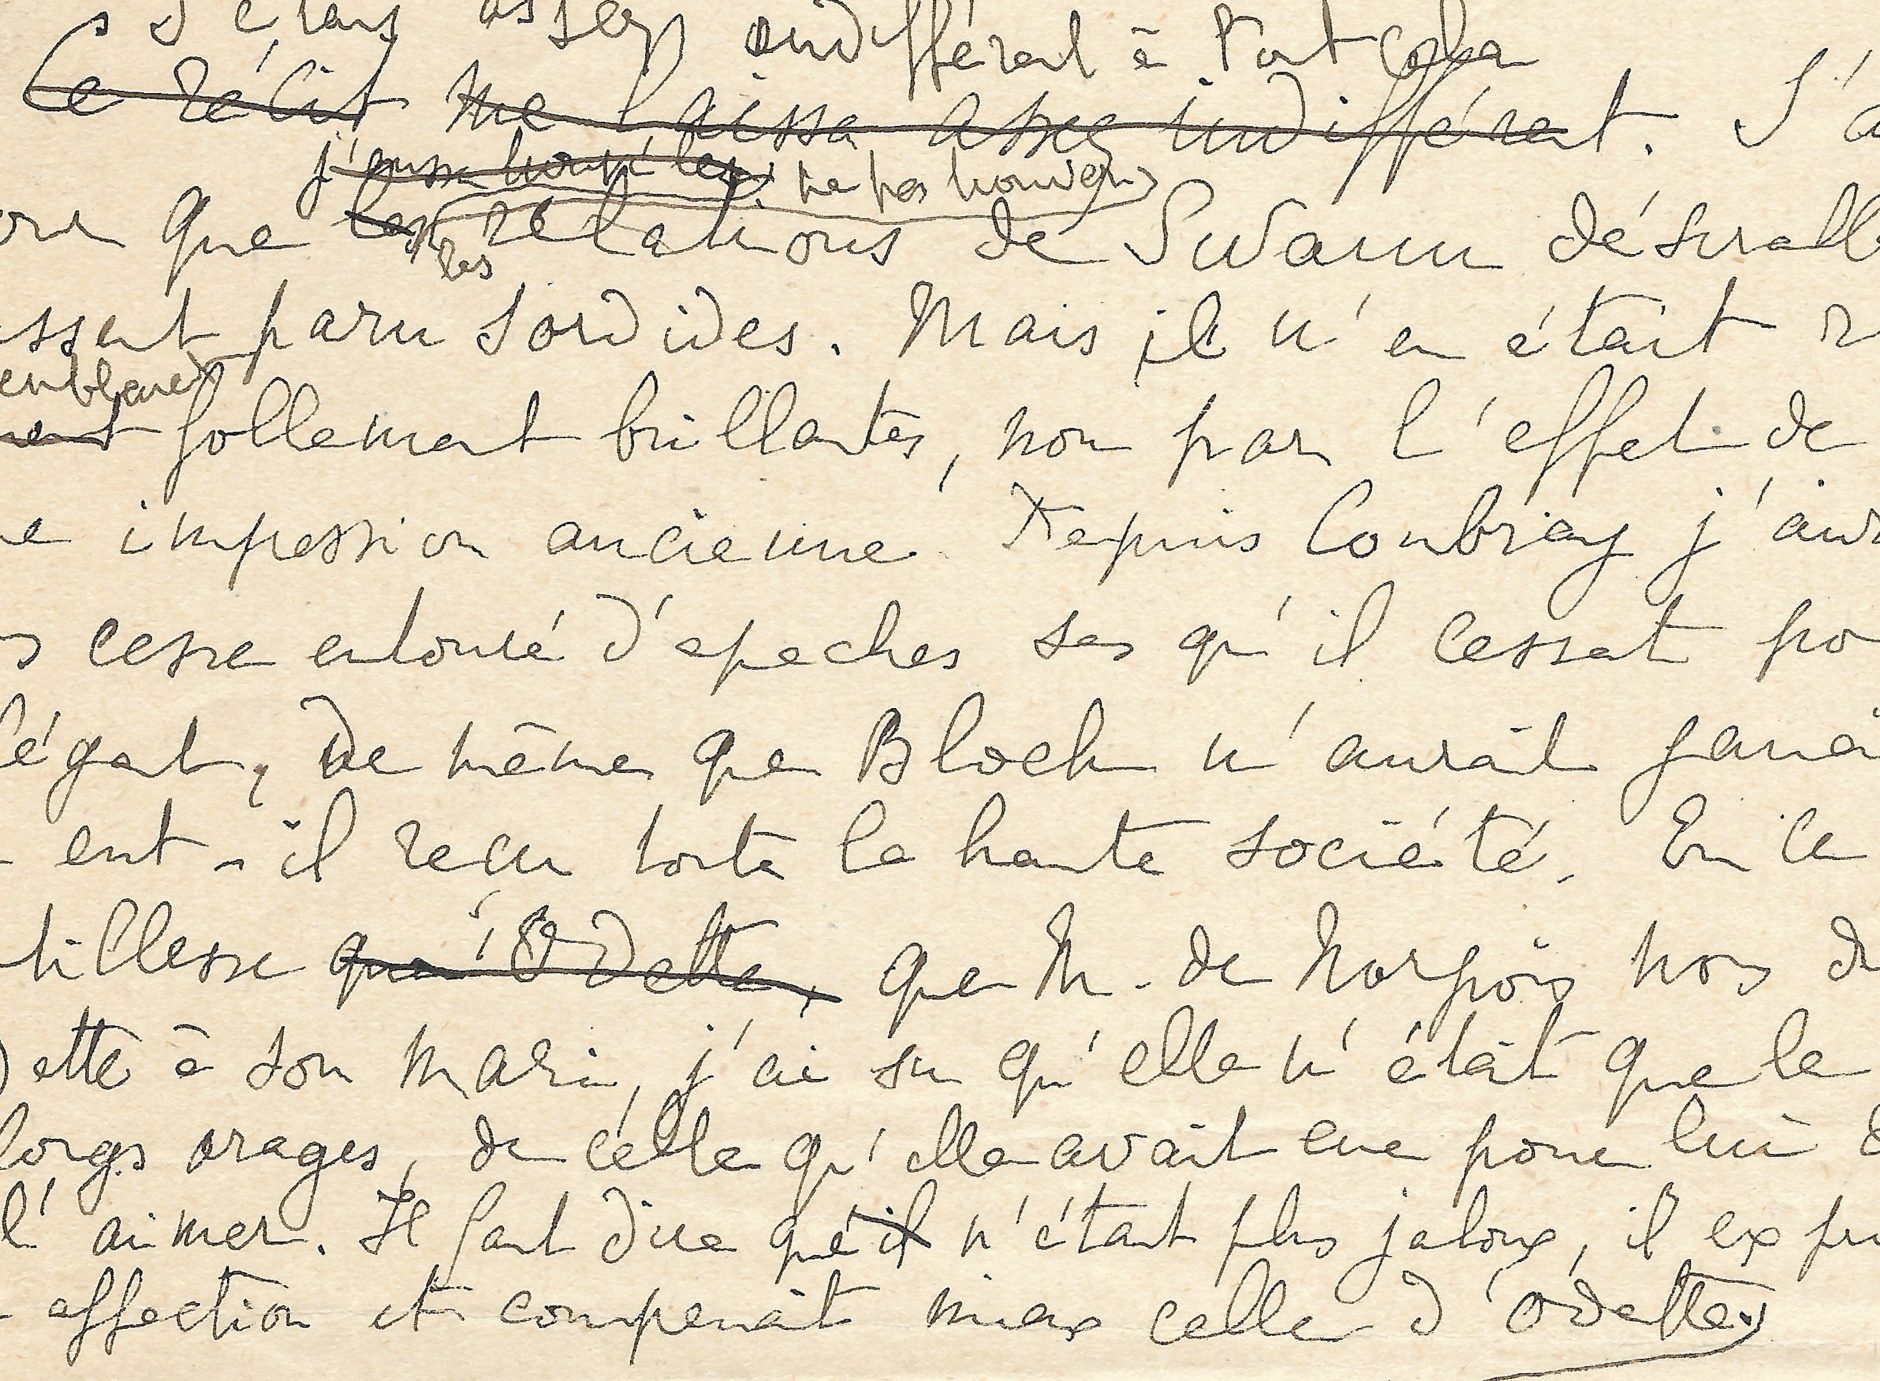 s j'étais assez indifférent à tout cela
Ce récit me laissa assez indifférent. J'a
j'eusse trouvé les ne pas trouver
que les relations de Swann
ses
ssent paru sordides. Mais il n'en était r
follement brillantes, non par l'effet de
e impression ancienne. Depuis Combray j'av
s cesse entouré d'épeches ses qu'il cessat po
légat, de même que Bloch n'aurait jamai
ent-il reçu toute la haute société. En ce
tillesse qu'Odette, que M. de Norpois nous d
dette à son mari, j'ai su qu'elle n'était que le
longs orages, de celle qu'elle avait eue pour lui d
l'aimer. Il faut dire qu'il n'étant plus jaloux, il expri
affection et comprenait mieux celle d'Odette.